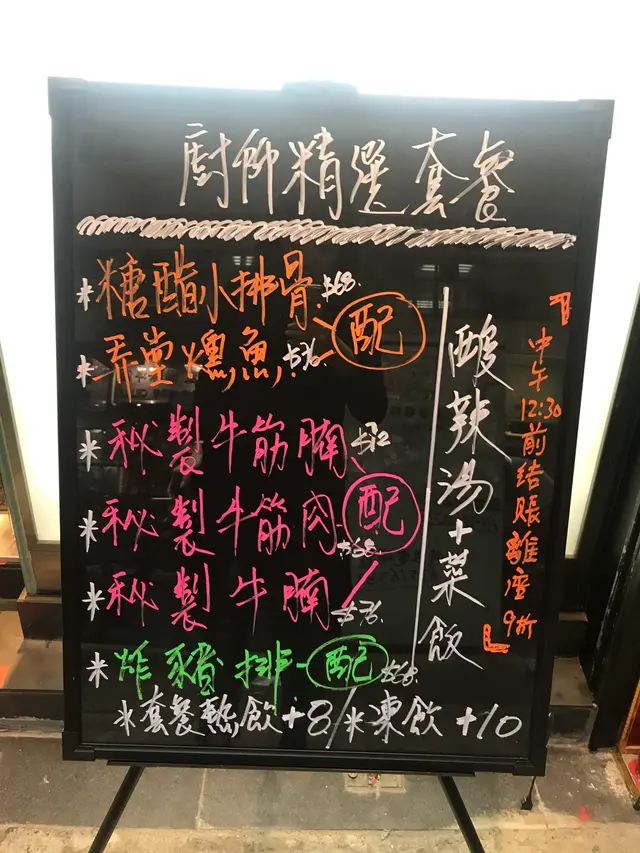 廚師精選套餐
*糖醋小排骨 $68.
*弄堂燻魚 $76.
配
*秘製牛筋腩 $72
*秘製牛筋肉 $68.
配
*秘製牛腩 $76.
*炸豬排-配 $68.
酸辣湯+菜飯
『中午12:30前結賬離座9折』
*套餐熱飲+8/*凍飲+10